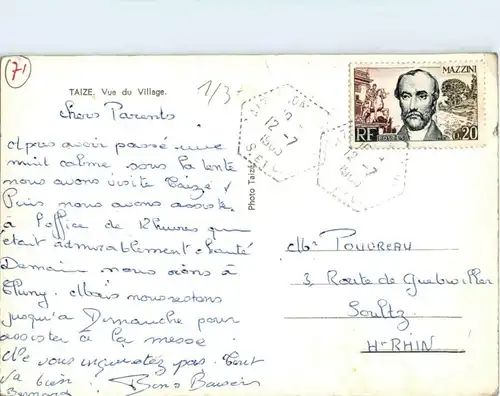 71
TAIZE. Vue du Village.
1/3
MAZZINI
RF
0.20
POSTES
12-7
12-7
Photo Taizé
Chers Parents
Après avoir passé une
nuit calme sous la tente
nous avons visité Taizé
Puis nous avons assisté
à l'office de 12heures qui
était admirablement chanté
Demain nous irons à
Cluny. Mais nous restons
jusqu'à Dimanche pour
assister à la messe
Ne vous inquiétez pas. Tout
va bien. Bons Baisers
Bernard
Mr POUDREAU
3, Route de Guebwiller
Soultz
Ht-RHIN